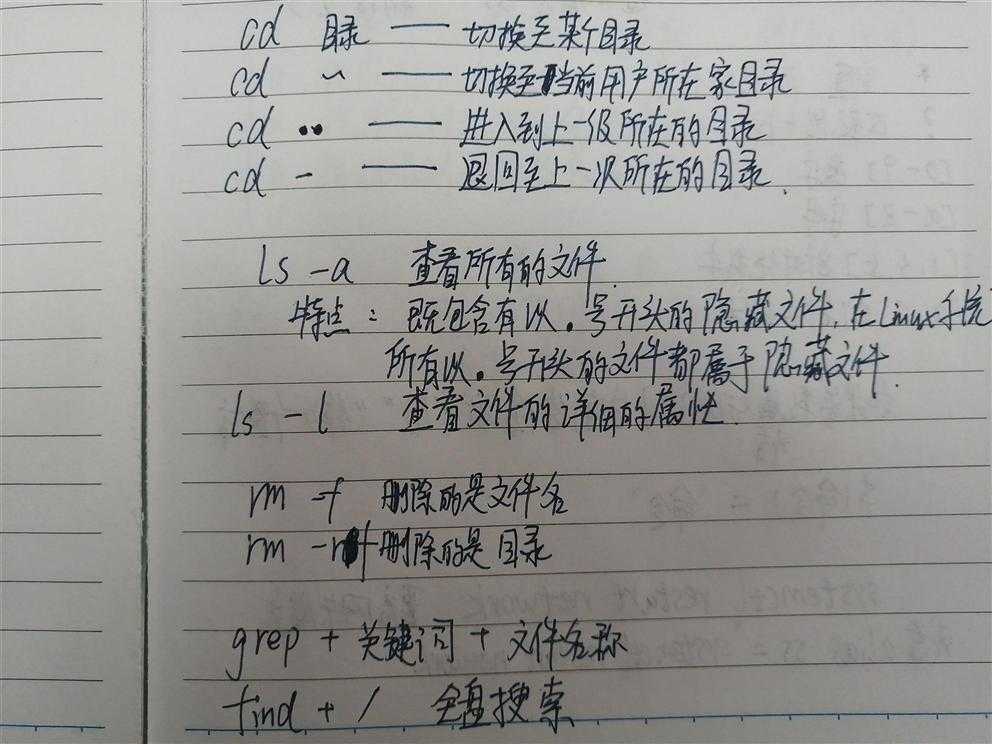 cd 目录 —— 切换至某个目录
cd ~ —— 切换至当前用户所在家目录
cd .. —— 进入到上一级所在的目录
cd - —— 退回至上一次所在的目录.
ls -a 查看所有的文件
特点: 既包含有以.号开头的隐藏文件,在Linux系统
所有以.号开头的文件都属于隐藏文件.
ls - l 查看文件的详细的属性.
rm -f 删除的是文件名
rm -rf 删除的是目录
grep + 关键词 + 文件名称
find + / 全盘搜索